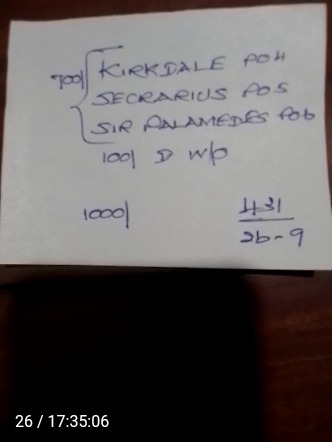 700/ KIRKDALE PO4
SECRARIUS POS
SIR PALAMEDES POb
100/ D W/P
1000/
431
2b-9
26 / 17:35:06